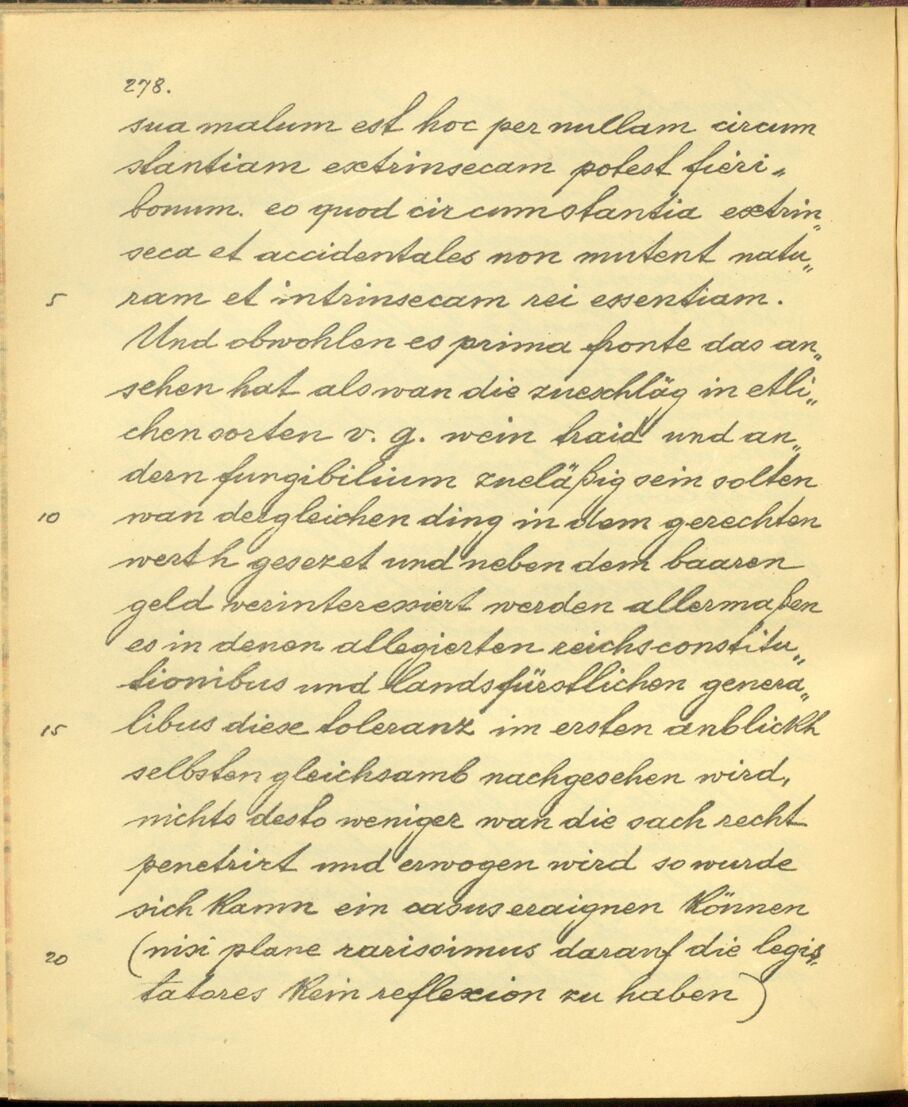 278.
sua malum est hoc per nullam circum
stantiam extrinsecam potest fieri„
bonum. eo quod circumstantia extrin„
seca et accidentales non mutent natu„
5 ram et intrinsecam rei essentiam.
Und obwohlen es prima fronte das an„
sehen hat als wan die zueschläg in etli„
chen sorten v. g. wein traid und an„
dern fungibilium zueläßig sein solten
10 wan dergleichen ding in dem gerechten
werth gesezet und neben dem baaren
geld verinteressiert werden allermaßen
es in denen allegierten reichsconstitu„
tionibus und landsfürstlichen genera„
15 libus diese toleranz im ersten anblickh
selbsten gleichsamb nachgesehen wird,
nichts desto weniger wan die sach recht
penetrirt und erwogen wird so wurde
sich kamn ein casus eraignen können
20 (nisi plane rarissimus darauf die legis„
tatores kein reflexion zu haben)